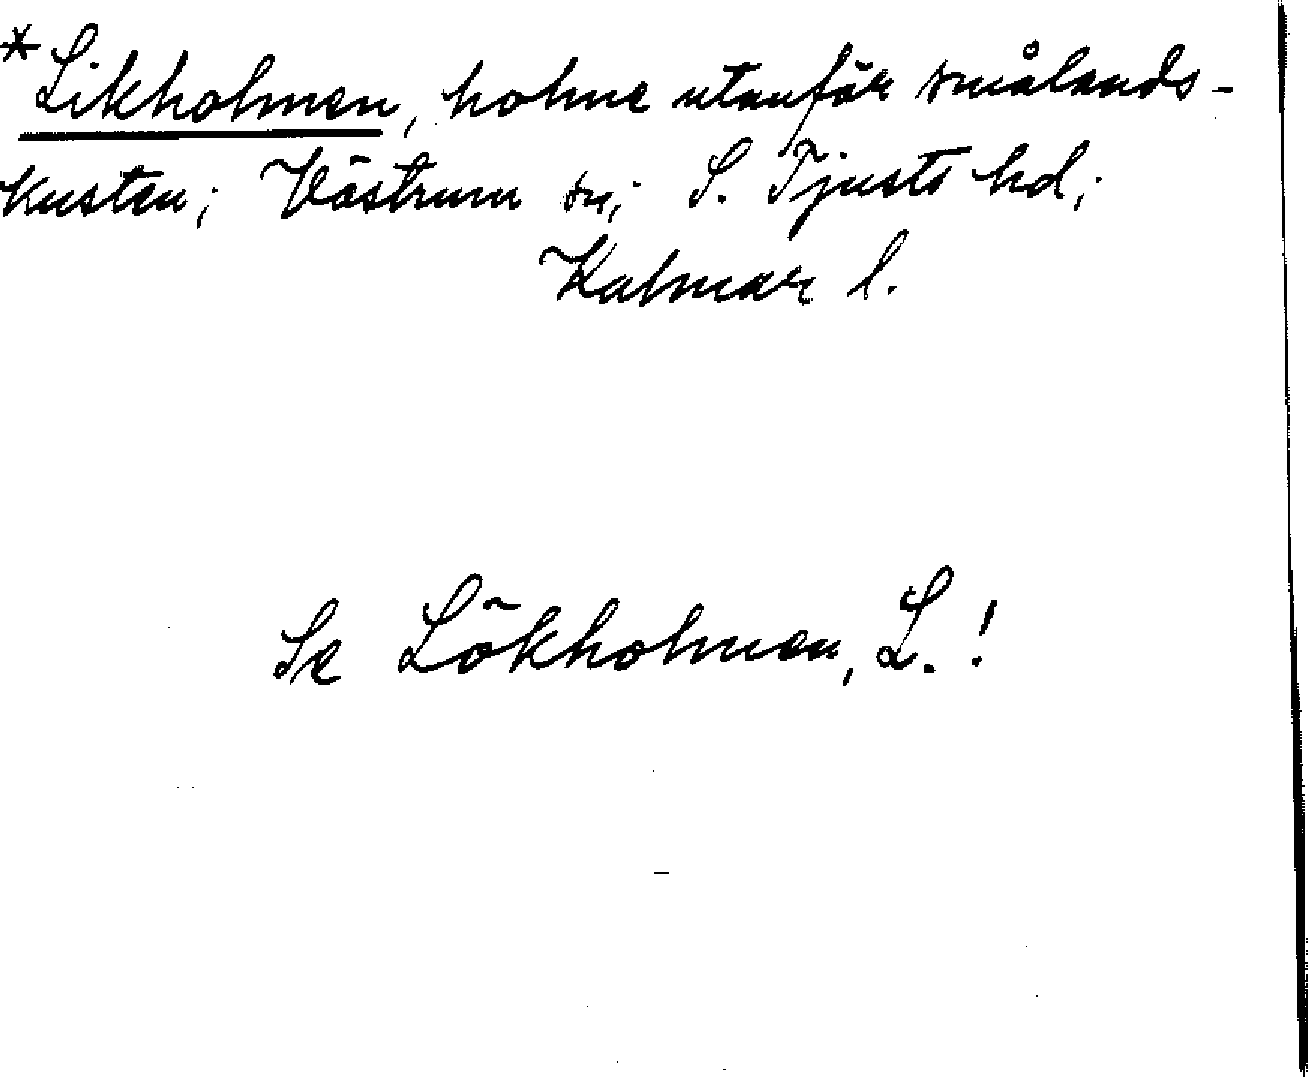 *Likholmen, holme utanför smålands-
kusten; Västrum sn; S. Tjusts hd;
Kalmar l.
Se Lökholmen, L.!